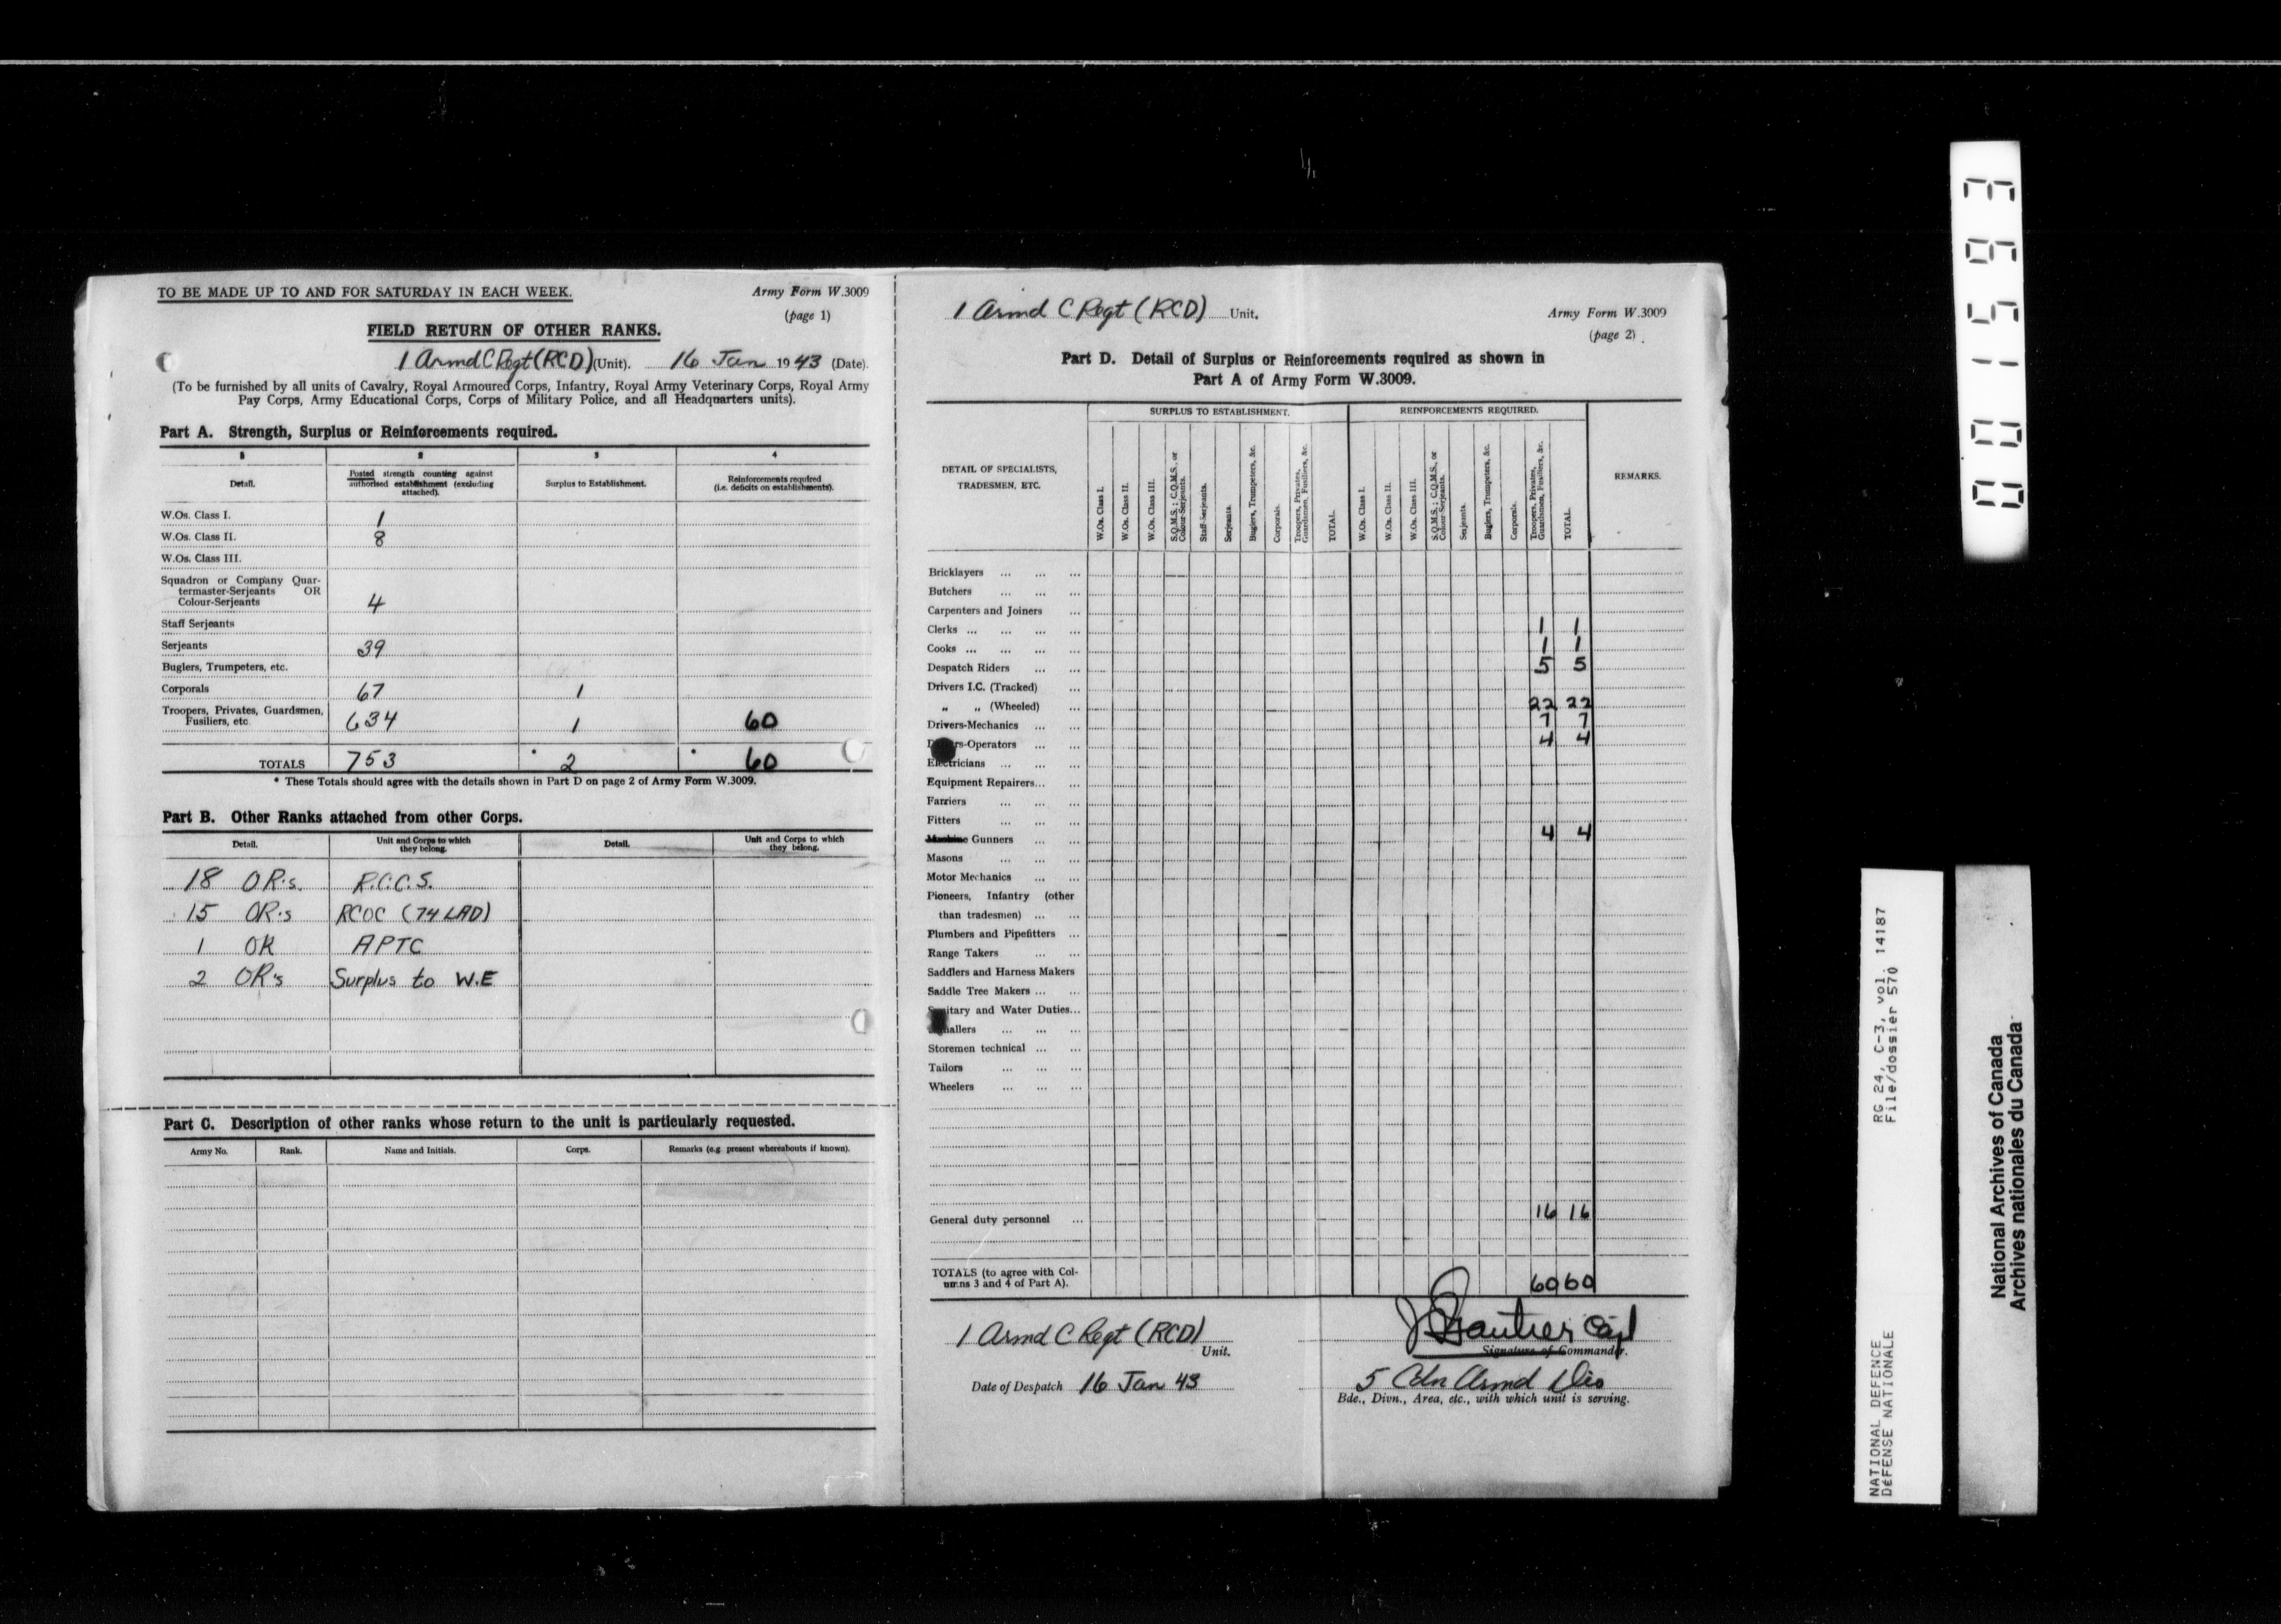 TO BE MADE UP TO AND FOR SATURDAY IN EACH WEEK.
Army Form W.3009
(page 1)
FIELD RETURN OF OTHER RANKS.
1 Armd C Regt (RCD) (Unit). 16 Jan 1943 (Date).
(To be furnished by all units of Cavalry, Royal Armoured Corps, Infantry, Royal Army Veterinary Corps, Royal Army
Pay Corps, Army Educational Corps, Corps of Military Police, and all Headquarters units).
Part A. Strength, Surplus or Reinforcements required.
1 2 3 4
Detail.
Posted strength counting against
authorised establishment (excluding
attached).
Surplus to Establishment.
Reinforcements required
(i.e. deficits on establishments).
W.Os. Class I. 1
W.Os. Class II. 8
W.Os. Class III.
Squadron or Company Quar-
termaster-Serjeants OR
Colour-Serjeants 4
Staff Serjeants
Serjeants 39
Buglers, Trumpeters, etc.
Corporals 67 1
Troopers, Privates, Guardsmen,
Fusiliers, etc. 634 1 60
TOTALS 753 * 2 * 60
* These Totals should agree with the details shown in Part D on page 2 of Army Form W.3009.
Part B. Other Ranks attached from other Corps.
Detail.
Unit and Corps to which
they belong.
Detail.
Unit and Corps to which
they belong.
18 OR's. R.C.C.S.
15 OR's RCOC (74 LAD)
1 OR APTC
2 OR's Surplus to W.E
Part C. Description of other ranks whose return to the unit is particularly requested.
Army No. Rank. Name and Initials. Corps. Remarks (e.g. present whereabouts if known).
1 Armd C Regt (RCD) Unit.
Army Form W.3009
(page 2)
Part D. Detail of Surplus or Reinforcements required as shown in
Part A of Army Form W.3009.
DETAIL OF SPECIALISTS,
TRADESMEN, ETC.
SURPLUS TO ESTABLISHMENT.
W.Os. Class I.
W.Os. Class II.
W.Os. Class III.
S.Q.M.S.; C.Q.M.S., or
Colour-Serjeants.
Staff-Serjeants.
Serjeants.
Buglers, Trumpeters, &c.
Corporals.
Troopers, Privates,
Guardsmen, Fusiliers, &c.
TOTAL.
REINFORCEMENTS REQUIRED.
W.Os. Class I.
W.Os. Class II.
W.Os. Class III.
S.Q.M.S.; C.Q.M.S., or
Colour-Serjeants.
Serjeants.
Buglers, Trumpeters, &c.
Corporals.
Troopers, Privates,
Guardsmen, Fusiliers, &c.
TOTAL.
REMARKS.
Bricklayers ... ... ...
Butchers ... ... ...
Carpenters and Joiners ...
Clerks ... ... ... ... 1 1
Cooks ... ... ... ... 1 1
Despatch Riders ... ... 5 5
Drivers I.C. (Tracked) ...
„ „ (Wheeled) ... 22 22
Drivers-Mechanics ... ... 7 7
rs-Operators ... ... 4 4
Electricians ... ... ...
Equipment Repairers... ...
Farriers ... ... ...
Fitters ... ... ...
Machine Gunners ... ... 4 4
Masons ... ... ...
Motor Mechanics ... ...
Pioneers, Infantry (other
than tradesmen) ... ...
Plumbers and Pipefitters ...
Range Takers ... ...
Saddlers and Harness Makers
Saddle Tree Makers ... ...
Sanitary and Water Duties...
Signallers ... ... ...
Storemen technical ... ...
Tailors ... ... ...
Wheelers ... ... ...
General duty personnel ... 16 16
TOTALS (to agree with Col-
umns 3 and 4 of Part A). 60 60
1 Armd C Regt (RCD)
Unit.
Capt
Signature of Commander.
Date of Despatch 16 Jan 43
5 Cdn Armd Div
Bde., Divn., Area, etc., with which unit is serving.
001593
RG 24, C-3, vol. 14187
File/dossier 570
NATIONAL DEFENCE
DÉFENSE NATIONALE
National Archives of Canada
Archives nationales du Canada